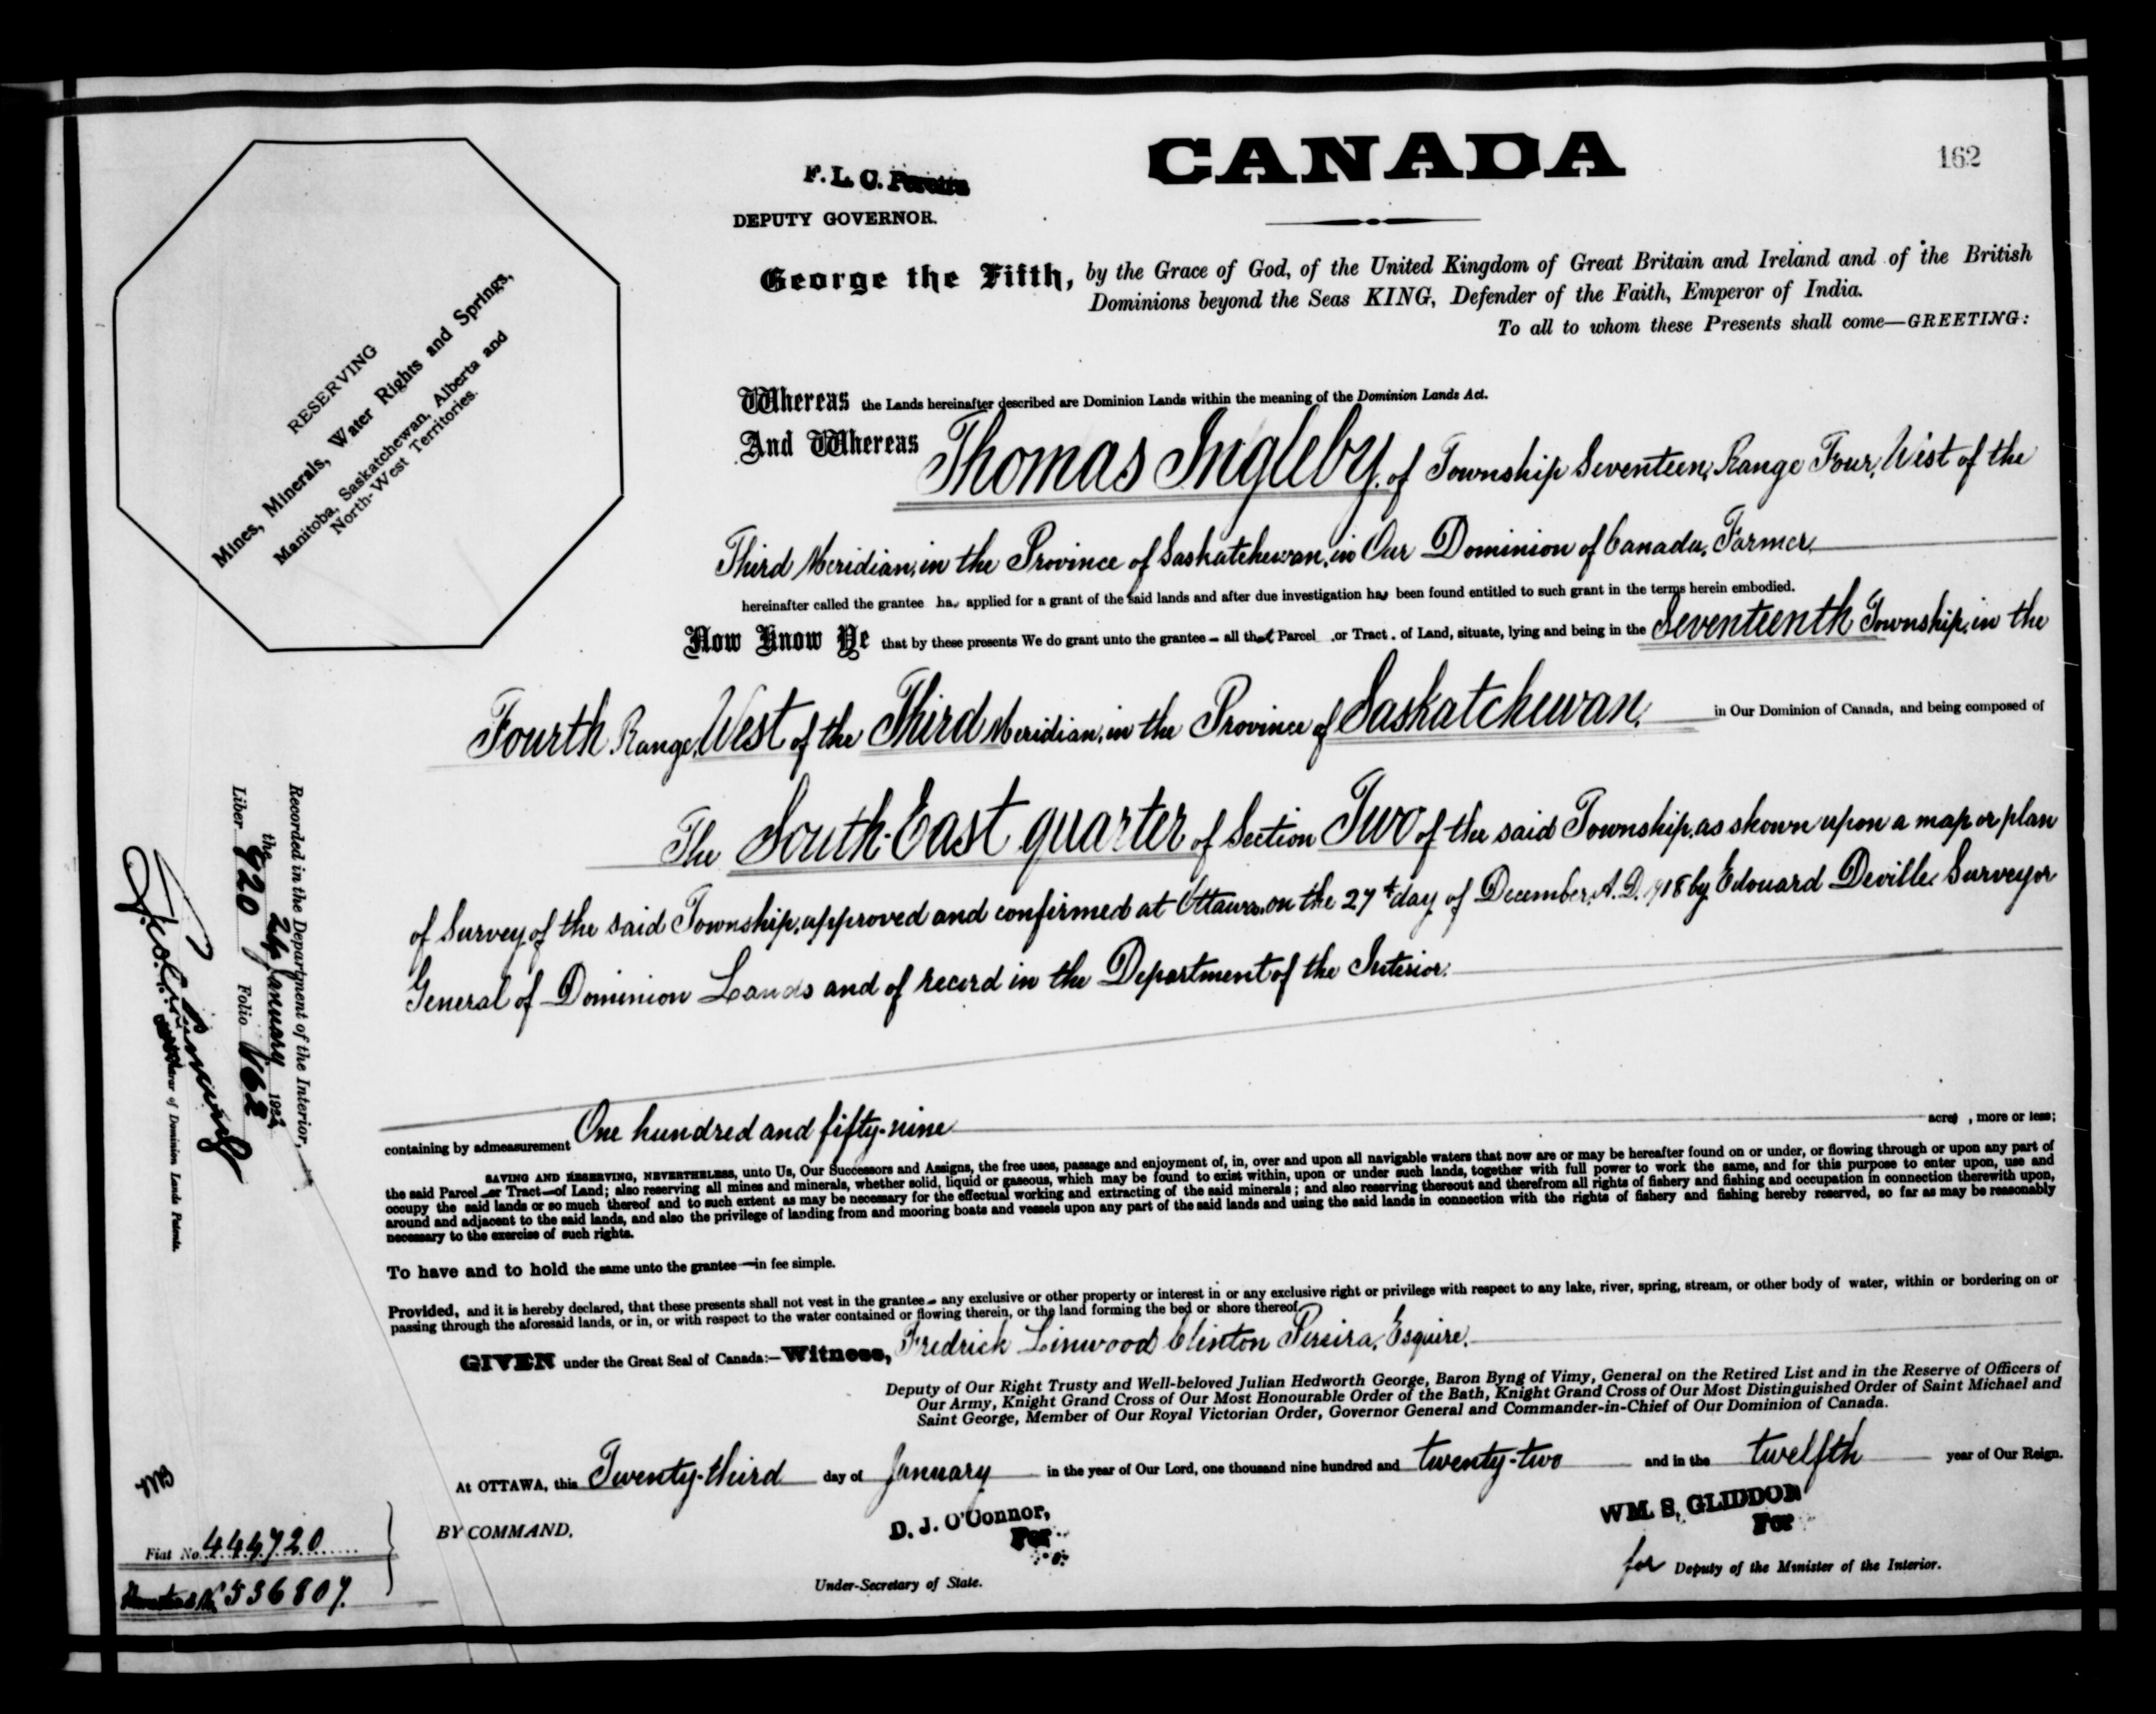 CANADA
162
F. L. C. Pereira
DEPUTY GOVERNOR.
George the Fifth, by the Grace of God, of the United Kingdom of Great Britain and Ireland and of the British
Dominions beyond the Seas KING, Defender of the Faith, Emperor of India.
To all to whom these Presents shall come—GREETING:
RESERVING
Mines, Minerals, Water Rights and Springs,
Manitoba, Saskatchewan, Alberta and
North-West Territories.
Whereas the Lands hereinafter described are Dominion Lands within the meaning of the Dominion Lands Act.
And Whereas Thomas Ingleby, of Township Seventeen, Range Four, West of the
Third Meridian, in the Province of Saskatchewan, in Our Dominion of Canada, Farmer,
hereinafter called the grantee has applied for a grant of the said lands and after due investigation has been found entitled to such grant in the terms herein embodied.
Now Know Ye that by these presents We do grant unto the grantee — all that Parcel or Tract of Land, situate, lying and being in the Seventeenth Township, in the
Fourth Range, West of the Third Meridian, in the Province of Saskatchewan, in Our Dominion of Canada, and being composed of
The South-East quarter of Section Two of the said Township, as shown upon a map or plan
of Survey of the said Township, approved and confirmed at Ottawa, on the 27th day of December, A.D. 1918 by Edouard Deville, Surveyor
General of Dominion Lands and of record in the Department of the Interior.
containing by admeasurement One hundred and fifty-nine acres, more or less;
SAVING AND RESERVING, NEVERTHELESS, unto Us, Our Successors and Assigns, the free uses, passage and enjoyment of, in, over and upon all navigable waters that now are or may be hereafter found on or under, or flowing through or upon any part of
the said Parcel or Tract—of Land; also reserving all mines and minerals, whether solid, liquid or gaseous, which may be found to exist within, upon or under such lands, together with full power to work the same, and for this purpose to enter upon, use and
occupy the said lands or so much thereof and to such extent as may be necessary for the effectual working and extracting of the said minerals; and also reserving thereout and therefrom all rights of fishery and fishing and occupation in connection therewith upon,
around and adjacent to the said lands, and also the privilege of landing from and mooring boats and vessels upon any part of the said lands and using the said lands in connection with the rights of fishery and fishing hereby reserved, so far as may be reasonably
necessary to the exercise of such rights.
To have and to hold the same unto the grantee—in fee simple.
Provided, and it is hereby declared, that these presents shall not vest in the grantee — any exclusive or other property or interest in or any exclusive right or privilege with respect to any lake, river, spring, stream, or other body of water, within or bordering on or
passing through the aforesaid lands, or in, or with respect to the water contained or flowing therein, or the land forming the bed or shore thereof.
GIVEN under the Great Seal of Canada:—Witness, Fredrick Linwood Clinton Pereira, Esquire,
Deputy of Our Right Trusty and Well-beloved Julian Hedworth George, Baron Byng of Vimy, General on the Retired List and in the Reserve of Officers of
Our Army, Knight Grand Cross of Our Most Honourable Order of the Bath, Knight Grand Cross of Our Most Distinguished Order of Saint Michael and
Saint George, Member of Our Royal Victorian Order, Governor General and Commander-in-Chief of Our Dominion of Canada.
At OTTAWA, this Twenty-third day of January in the year of Our Lord, one thousand nine hundred and twenty-two and in the twelfth year of Our Reign.
BY COMMAND,
D. J. O'Connor,
For
Under-Secretary of State.
WM. S. GLIDDON
For
for Deputy of the Minister of the Interior.
Recorded in the Department of the Interior,
the 26 January 1922
Liber 920 Folio 162
of Dominion Lands Patents.
Fiat No. 444720
Homestead No 536807.